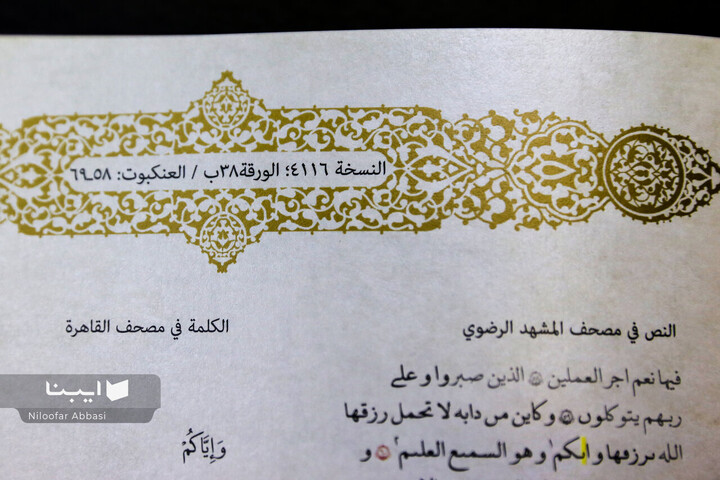 النسخة ٤١١٦؛ الورقة٣٨ب / العنكبوت: ٥٨ـ٦٩
النص في مصحف المشهد الرضوي
الكلمة في مصحف القاهرة
فيها نعم اجر العملين الذين صبروا و على
ربهم يتوكلون وكاين من دابه لا تحمل رزقها
الله يرزقها و ايكم و هو السميع العليم و
وَإِيَّاكُمْ
ایبنا
Niloofar Abbasi